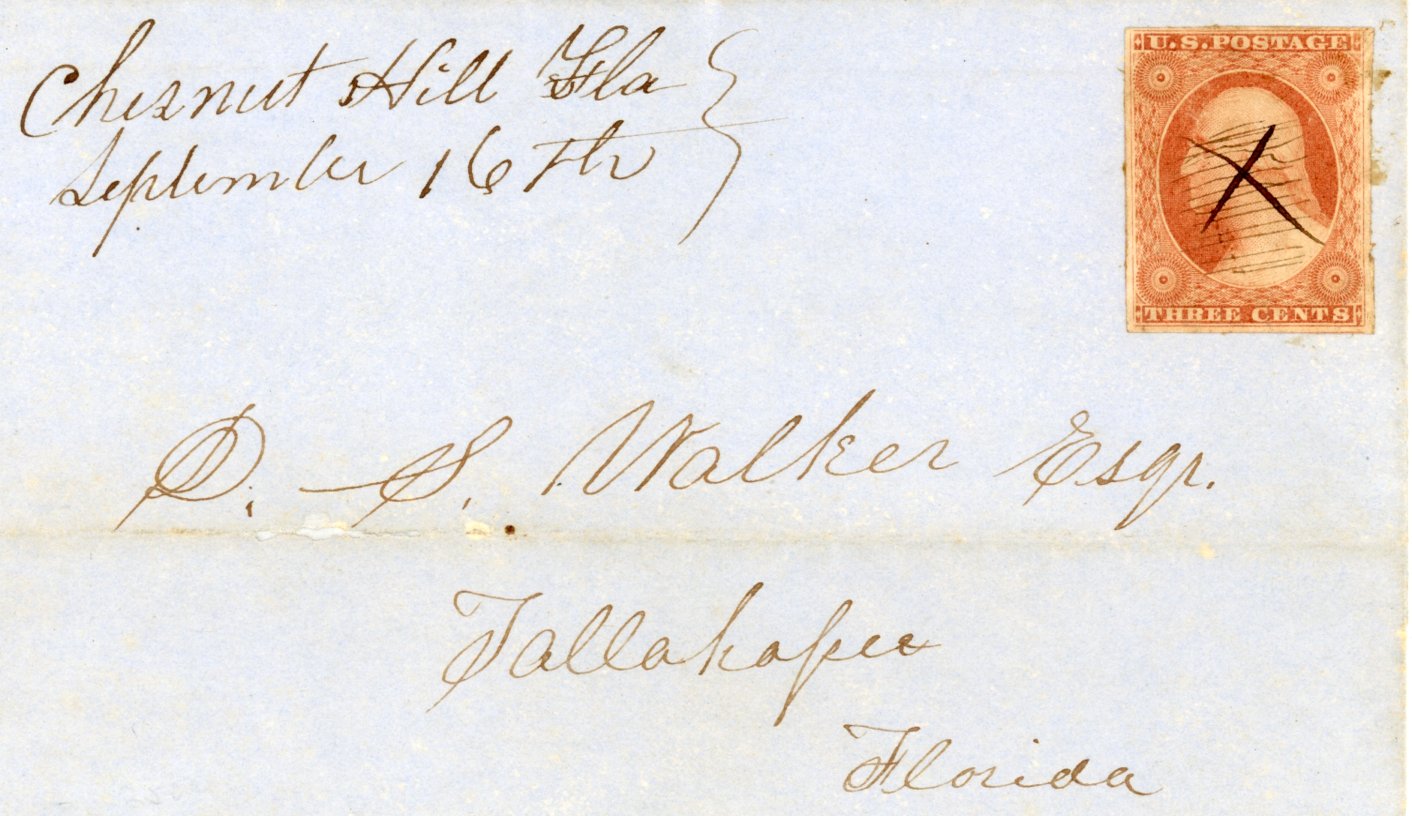 Chesnut Hill Fla
September 16th
U.S. POSTAGE
THREE CENTS
D. S. Walker Esqr.
Tallahassee
Florida